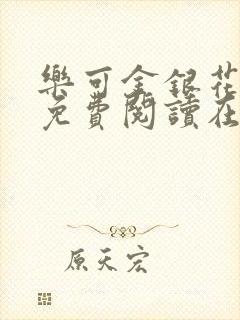 樂可金銀花
免費閱讀在
原天宏